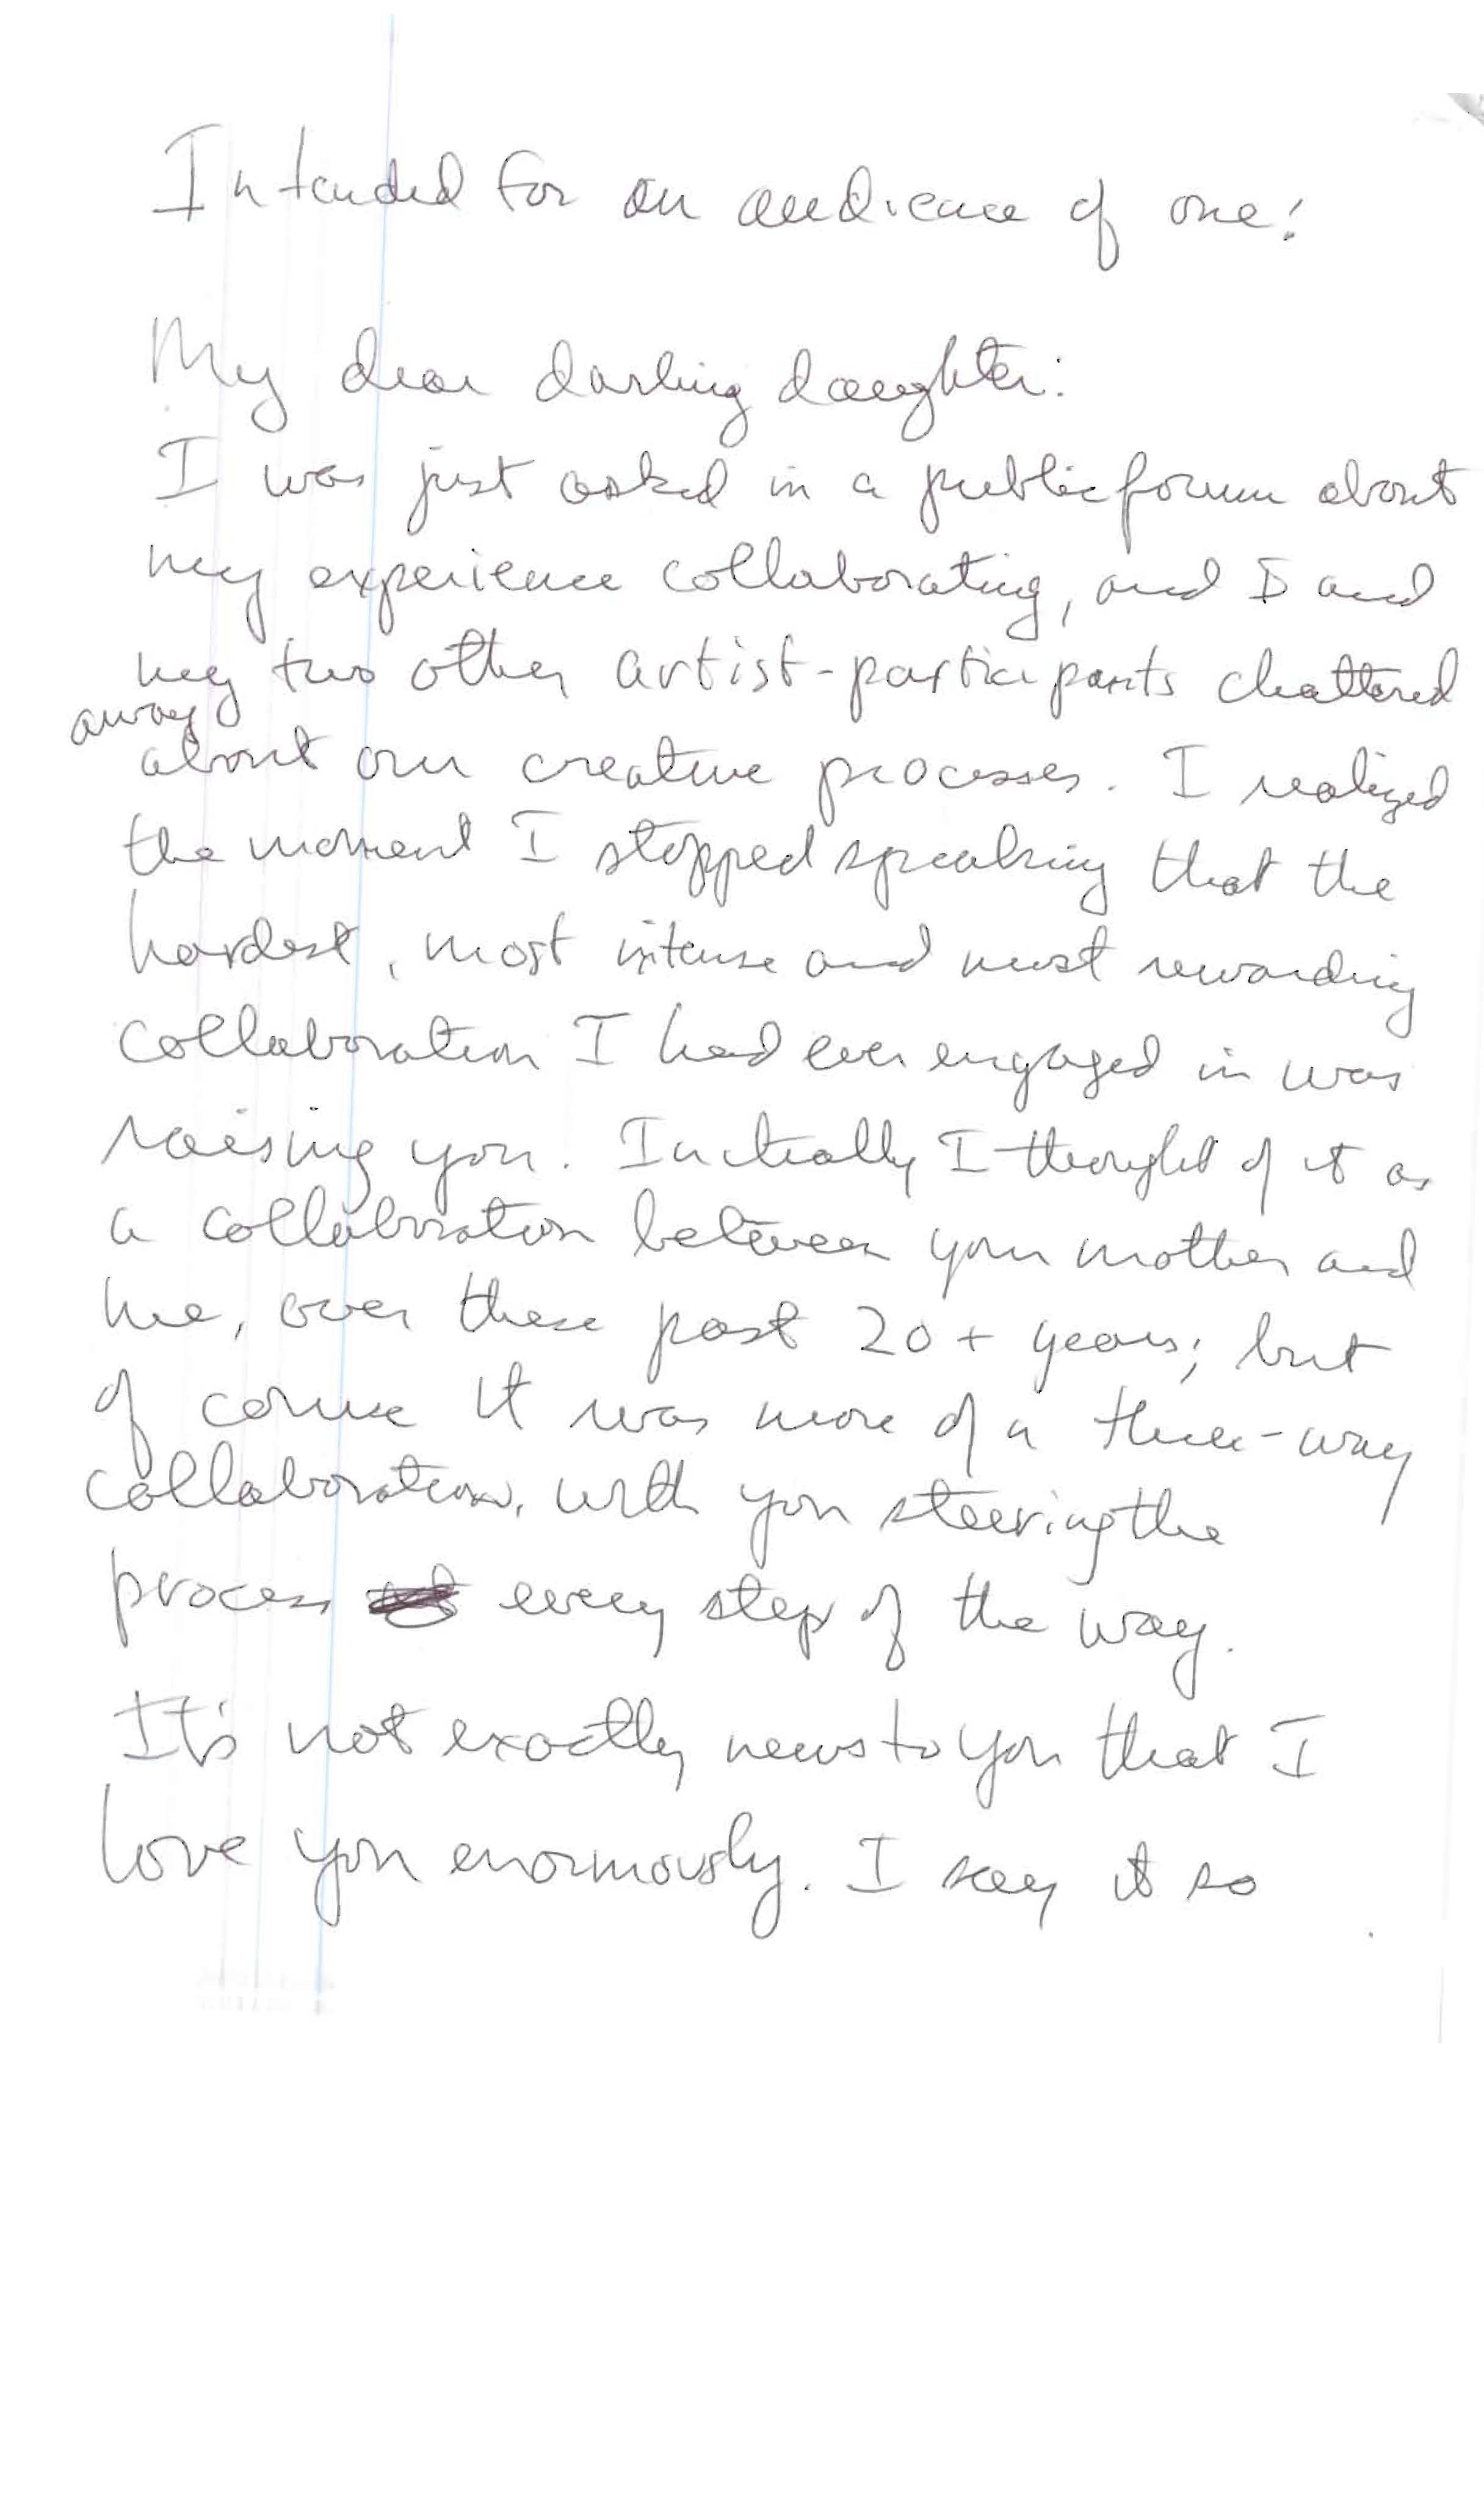 Intended for an audience of one!
My dear darling daughter:
I was just asked in a public forum about
my experience collaborating, and I and
my two other artist-participants chattered
away
about our creative processes. I realized
the moment I stopped speaking that the
hardest, most intense and most rewarding
collaboration I had ever engaged in was
raising you. Initially I thought of it as
a collaboration between your mother and
me, over these past 20+ years; but
of course it was more of a three-way
collaboration, with you steering the
process every step of the way.
It's not exactly news to you that I
love you enormously. I say it so